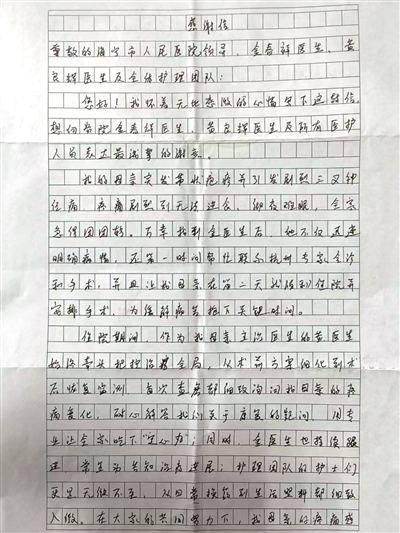 感谢信
尊敬的海宁市人民医院领导、金春祥医生、黄
良辉医生及全体护理团队：
您好！我怀着无比感激的心情写下这封信，
想向贵院金春祥医生、黄良辉医生及所有医护
人员表达最诚挚的谢意。
我的母亲突发带状疱疹并引发剧烈三叉神
经痛，疼痛剧烈到无法进食、彻夜难眠，全家
急得团团转。万幸找到金医生后，他不仅迅速
明确病情，还第一时间帮忙联系杭州专家会诊
和手术，并且让我母亲在第二天就住到住院并
安排手术，为缓解病苦抢下关键时间。
住院期间，作为我母亲主治医生的黄医生
始终牵头把控治疗全局，从术前方案细化到术
后恢复监测，每次查房都细致询问我母亲的疼
痛变化，耐心解答我们关于康复的疑问，用专
业让全家吃下"定心丸"；同时，金医生也持续跟
进，常来告知治疗进展；护理团队的护士们
更是无微不至，从日常换药到生活照料都细致
入微。在大家的共同努力下，我母亲的疼痛感